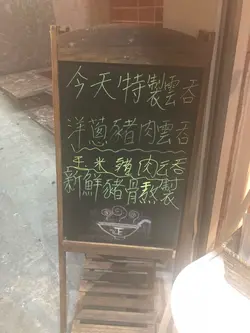 今天特製雲吞
洋蔥豬肉雲吞
玉米豬肉云吞
新鮮豬骨熬製